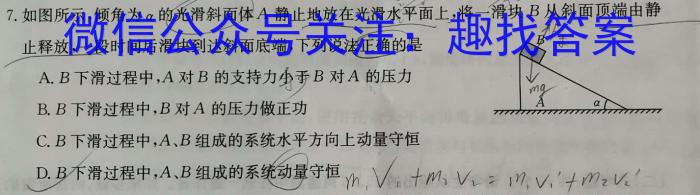 7.如图所示,倾角为α的光滑斜面体A静止地放在光滑水平面上,将一滑块B从斜面顶端由静
止释放,一段时间后滑块到达斜面底端,下列说法正确的是
微信公众号关注:趣找答案
A.B下滑过程中,A对B的支持力小于B对A的压力
B.B下滑过程中,B对A的压力做正功
C.B下滑过程中,A、B组成的系统水平方向上动量守恒
D.B下滑过程中,A、B组成的系统动量守恒
B
mg
A
α
m₁V₁+m₂V₂=m₁V₁'+m₂V₂'